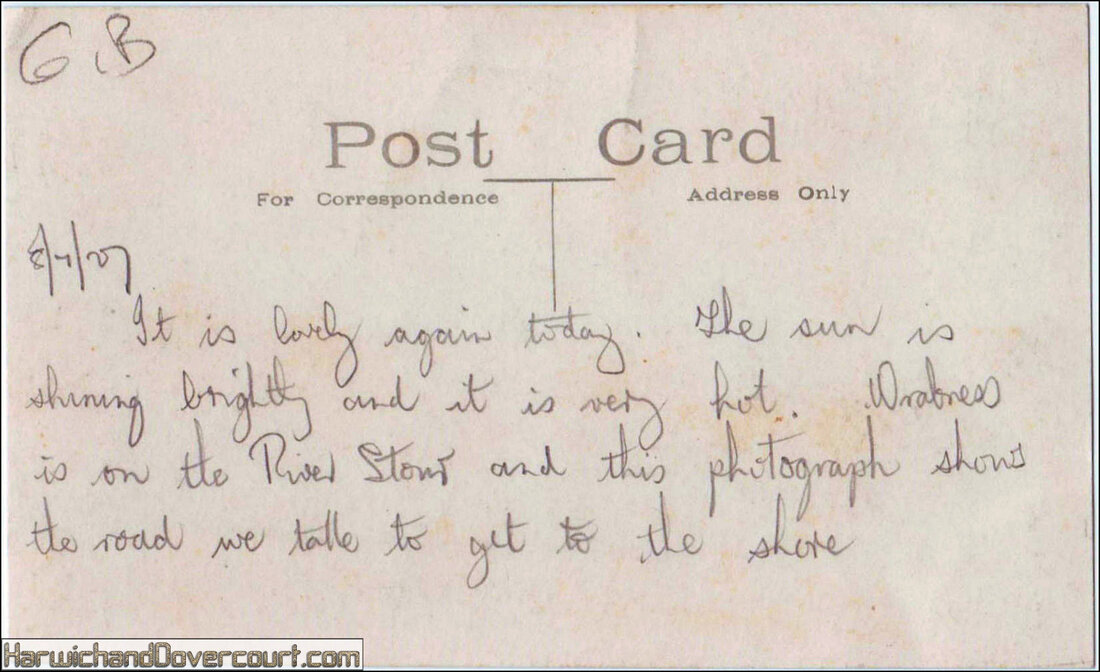 G.B
Post Card
For Correspondence Address Only
8/7/27
It is lovely again today. The sun is
shining brightly and it is very hot. Wrabness
is on the River Stour and this photograph shows
the road we take to get to the shore
HarwichandDovercourt.com